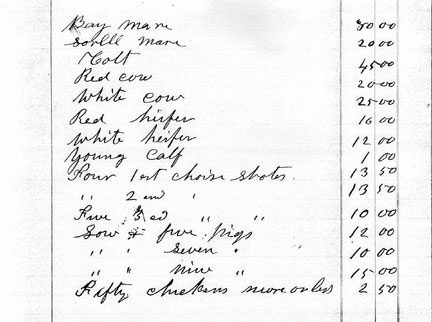 Bay mare 80 00
sorlll mare 20 00
Colt 45 00
Red cow 20 00
White cow 25 00
Red hiefer 16 00
White heifer 12 00
Young calf 1 00
Four 1st choise shotes. 13 50
" 2 end " 13 50
Five 3 ed " " 10 00
Sow & five pigs 12 00
" " seven " 10 00
" " nine " 15 00
Fifty chickens more or less 2 50